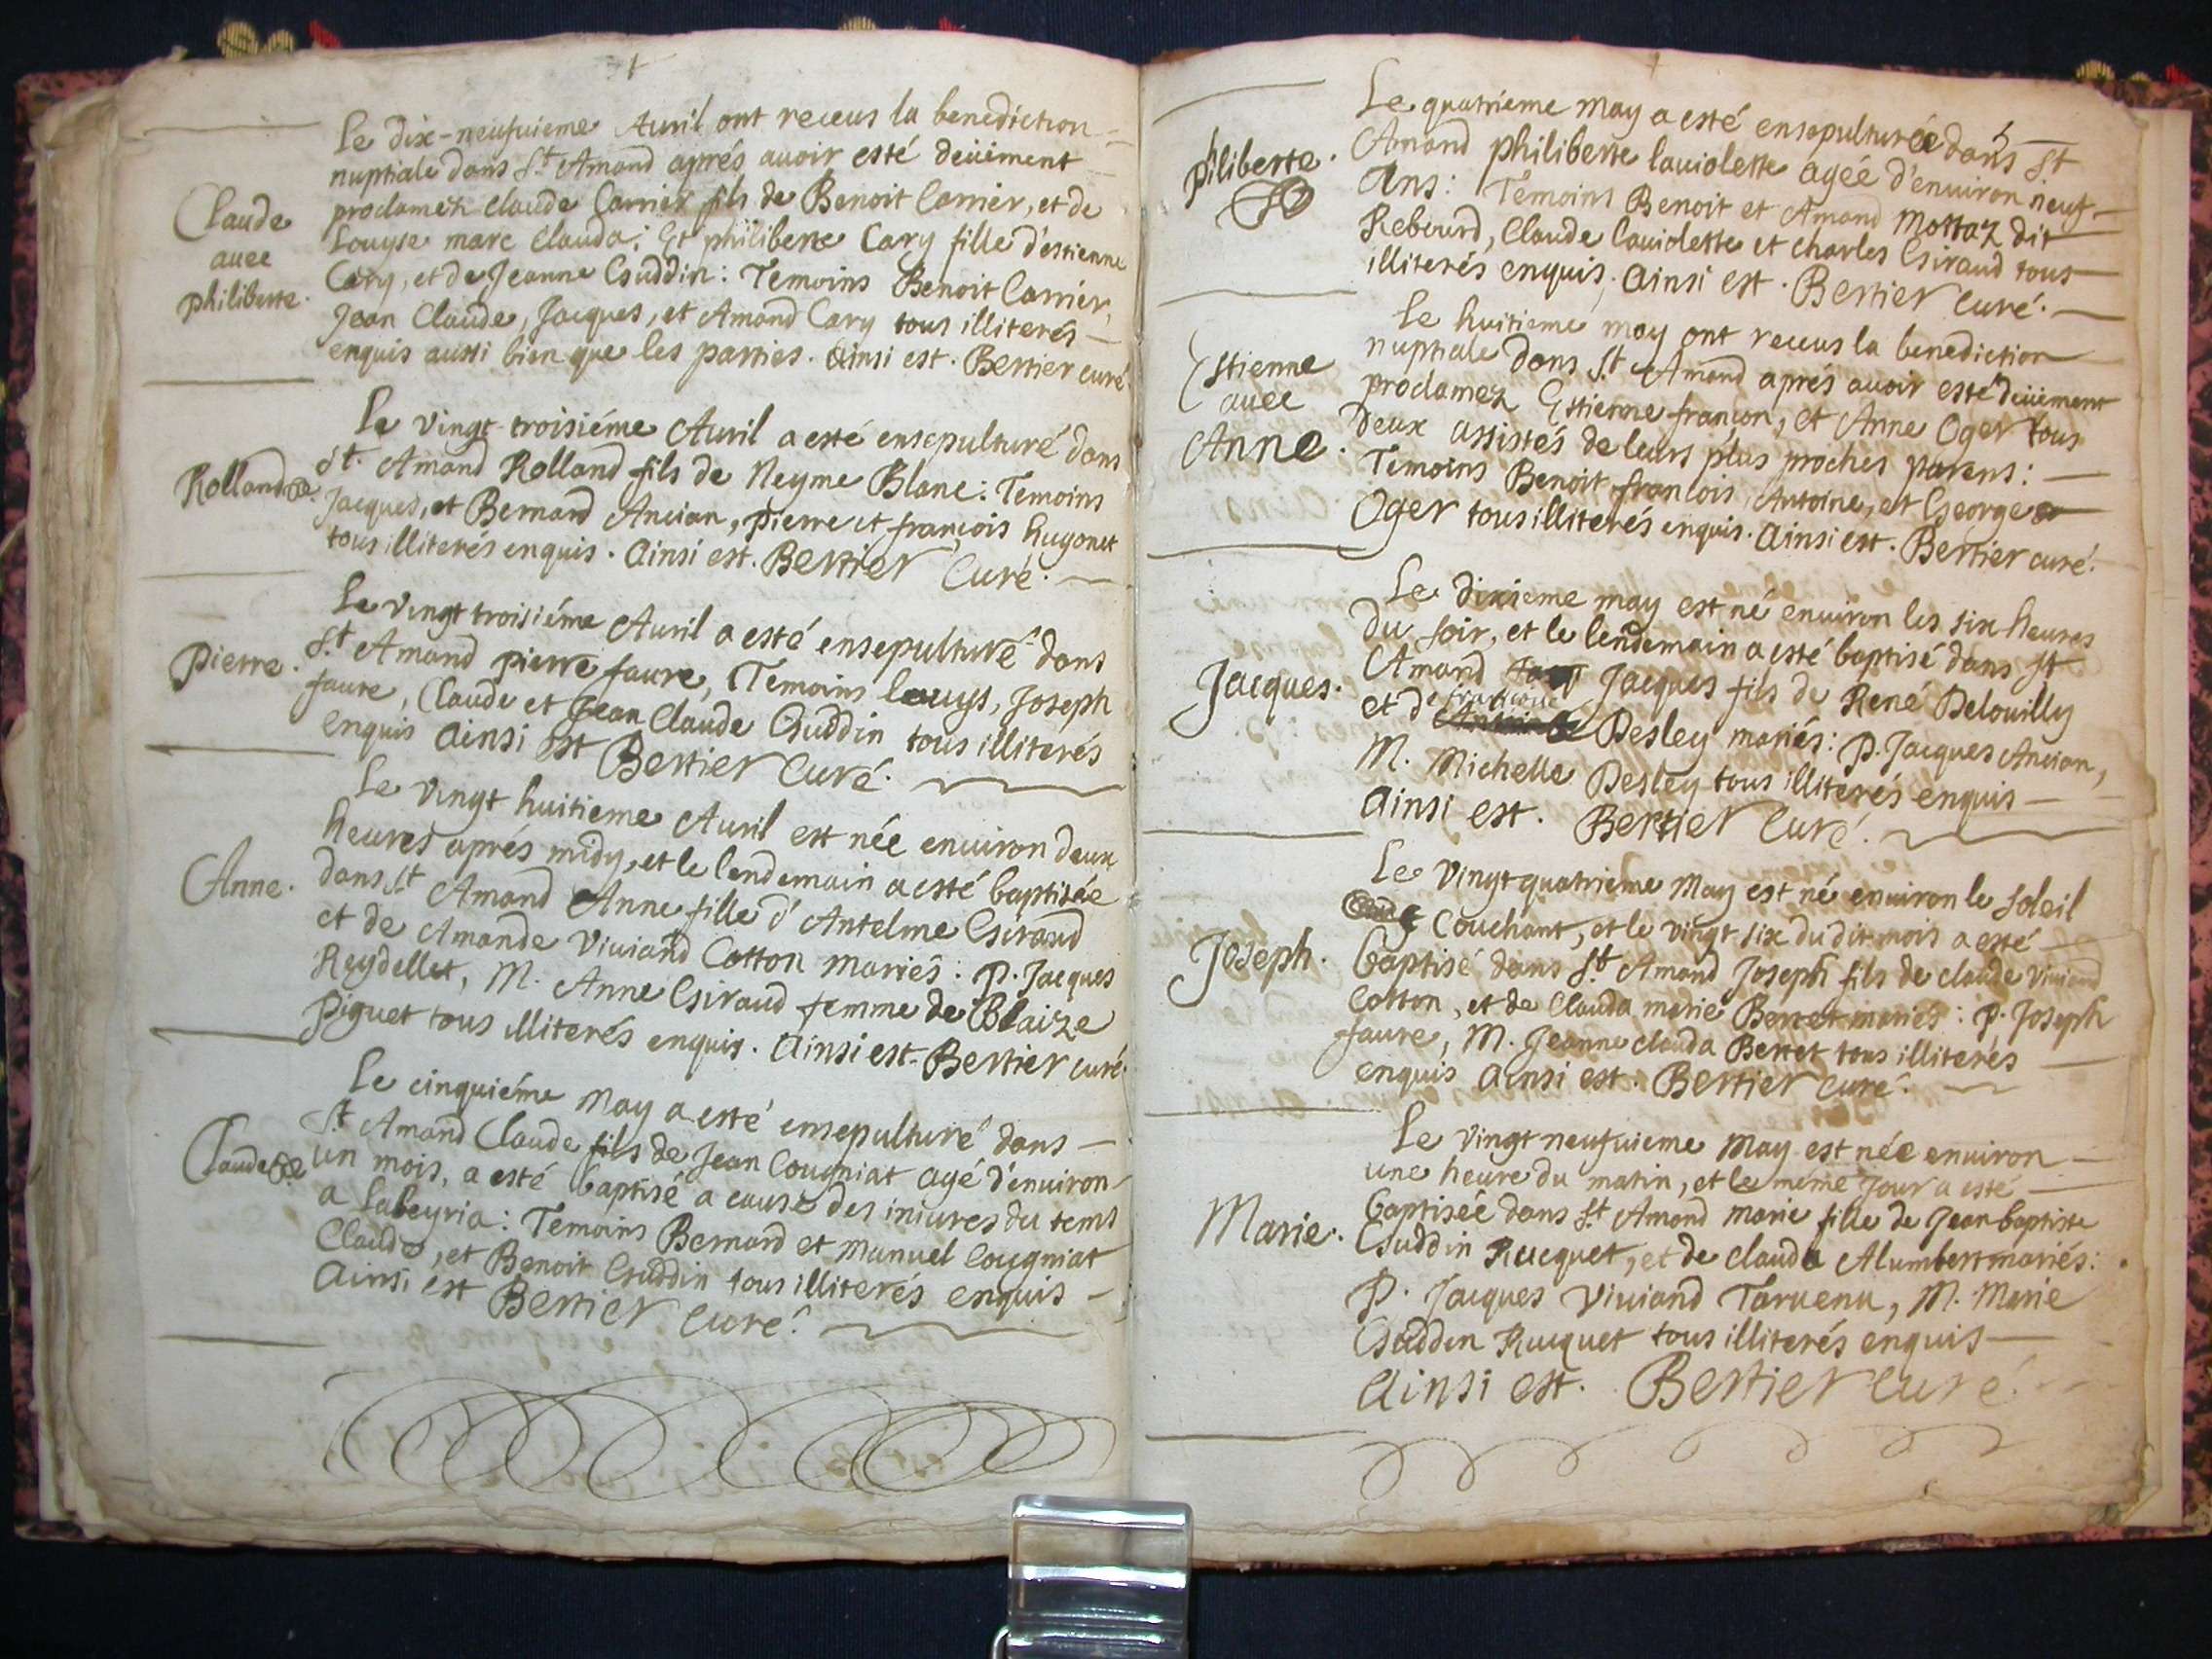 Le dix-neufuieme Auril ont receus la benediction
nuptiale dans St Amand aprés auoir esté deüement
proclamez claude Carrier fils de Benoit Carrier, et de
Claude
auec
philiberte.
Louyse marc Clauda: Et philiberte Cary fille d'estienne
Cary, et de Jeanne Guddin: Temoins Benoit Carrier,
Jean Claude, Jacques, et Amand Cary tous illiterés
enquis aussi bien que les parties. Ainsi est. Bertier curé
Le vingt-troisiéme Auril a esté ensepulturé dans
Rolland
St. Amand Rolland fils de Neyme Blanc: Temoins
Jacques, et Bernard Ancian, pierre et francois hugonet
tous illiterés enquis. Ainsi est. Bertier Curé.
Le vingt troisiéme Auril a esté ensepulturé dans
Pierre.
St Amand pierre faure, Temoins louys, Joseph
faure, Claude et Jean Claude Guddin tous illiterés
enquis Ainsi est Bertier Curé.
Le vingt huitieme Auril est née enuiron deux
heures aprés midy, et le lendemain a esté baptisée
Anne.
dans St Amand Anne fille d'Antelme Giraud
et de Amande Viuiand Cotton mariés: P. Jacques
Reydellet, M. Anne Giraud femme de Blaize
Piguet tous illiterés enquis. Ainsi est. Bertier curé.
Le cinquiéme May a esté ensepulturé dans
Claude
St Amand Claude fils de Jean Cougniat agé d'enuiron
un mois, a esté baptisé a cause des iniures du tems
a Labeyria: Temoins Bernard et Manuel Cougniat
Claude, et Benoit Guddin tous illiterés enquis
Ainsi est Bertier Curé.
Le quatrieme May a esté ensepulturée dans St
piliberte.
Amand philiberte lauiolette agée d'enuiron neuf
Ans: Temoins Benoit et Amand Mottaz dit
Rebourd, Claude lauiolette et charles Giraud tous
illiterés enquis. Ainsi est. Bertier Curé.
Le huitieme may ont receus la benediction
Estienne
auec
Anne.
nuptiale dans St Amand aprés auoir esté deüement
proclamez Estienne francon, et Anne Oger tous
deux assistés de leurs plus proches parens:
Temoins Benoit francois, Antoine, et George
Oger tous illiterés enquis. Ainsi est. Bertier curé.
Le dixieme may est né enuiron les six heures
du soir, et le lendemain a esté baptisé dans St
Jacques.
Amand Jacques fils de René Delouilly
et de francoise Desley mariés: P. Jacques Ancian,
M. Michelle Desley tous illiterés enquis
Ainsi est. Bertier Curé.
Le vingt quatrieme May est né enuiron le Soleil
Couchant, et le vingt six du dit mois a esté
Joseph.
baptisé dans St Amand Joseph fils de claude Viuiand
Cotton, et de Clauda marie Berret mariés: P. Joseph
faure, M. Jeanne clauda Berret tous illiterés
enquis Ainsi est. Bertier Curé.
Le vingt neufuieme May est née enuiron
une heure du matin, et le même Jour a esté
Marie.
baptisée dans St Amand Marie fille de Jean baptiste
Guddin Rucquet, et de clauda Alumbert mariés:
P. Jacques Viuiand Taruenu, M. Marie
Guddin Rucquet tous illiterés enquis
Ainsi est. Bertier Curé.